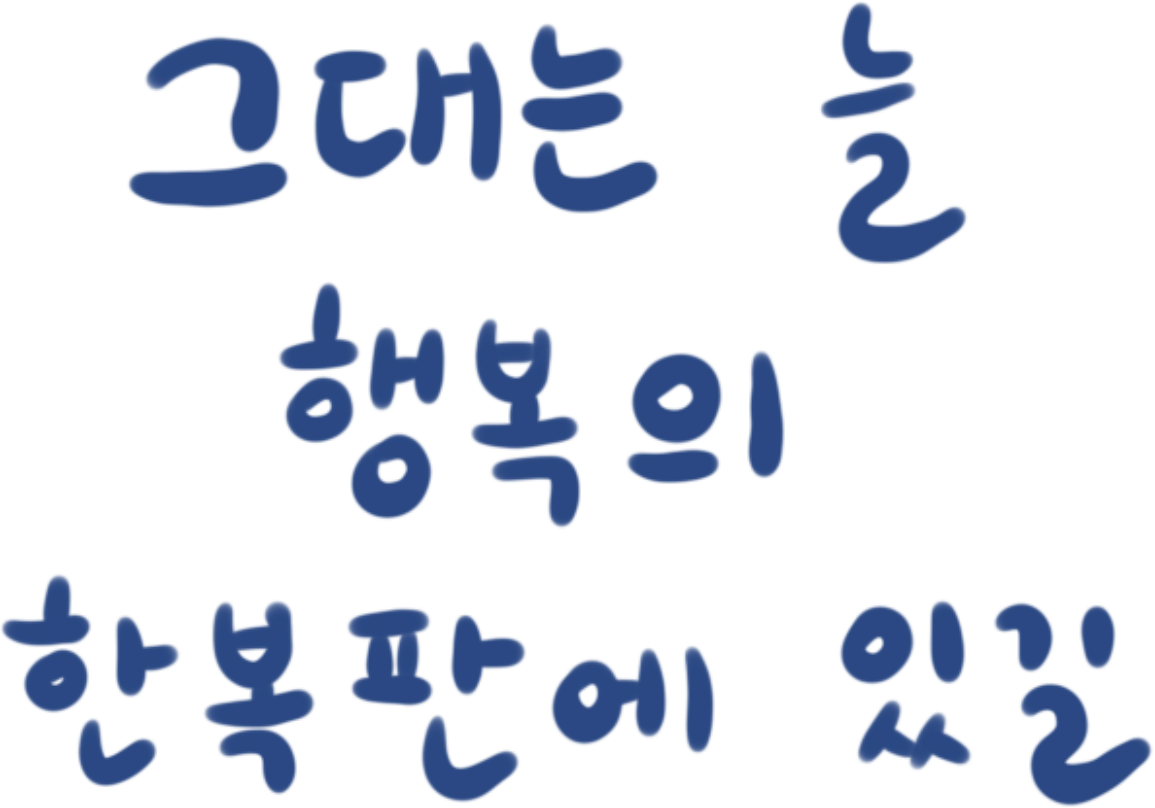 그대는 늘
행복의
한복판에 있길